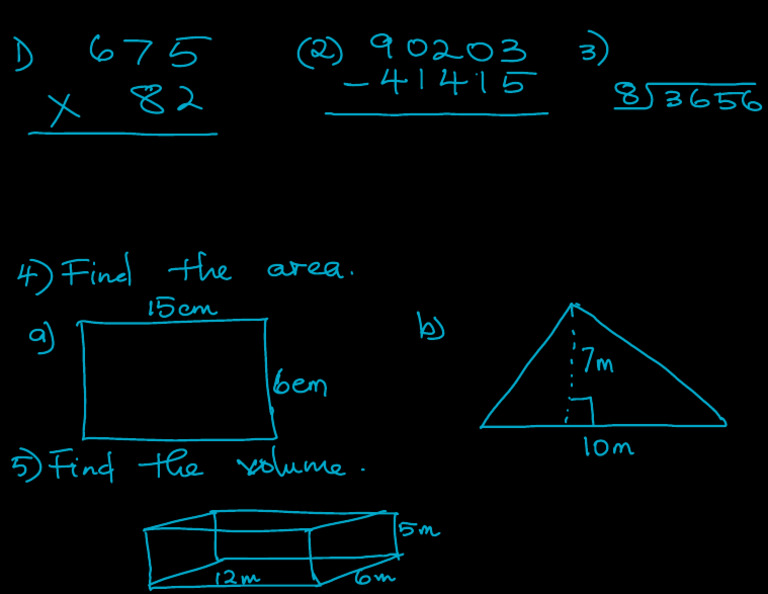 1) 675
x 82
(2) 90203
- 41415
3)
8)3656
4) Find the area.
a)
15cm
6cm
b)
7m
10m
5) Find the volume.
5m
12m
6m